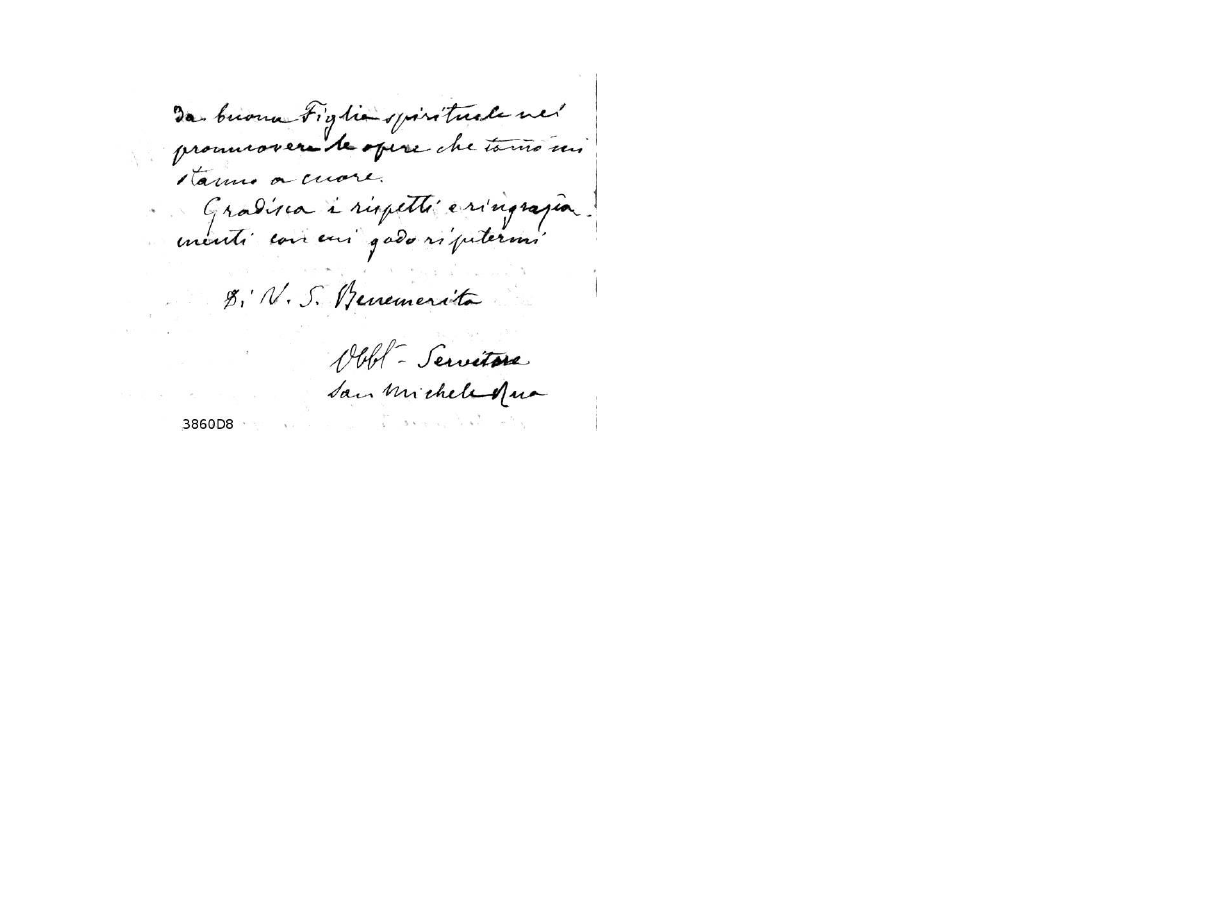 da buona Figlia spirituale nel
promuovere le opere che tanto mi
stanno a cuore.
Gradisca i rispetti e ringrazia-
menti con cui godo ripetermi
Di V. S. Benemerita
Obbl- Servitore
Sac Michele Rua
3860D8